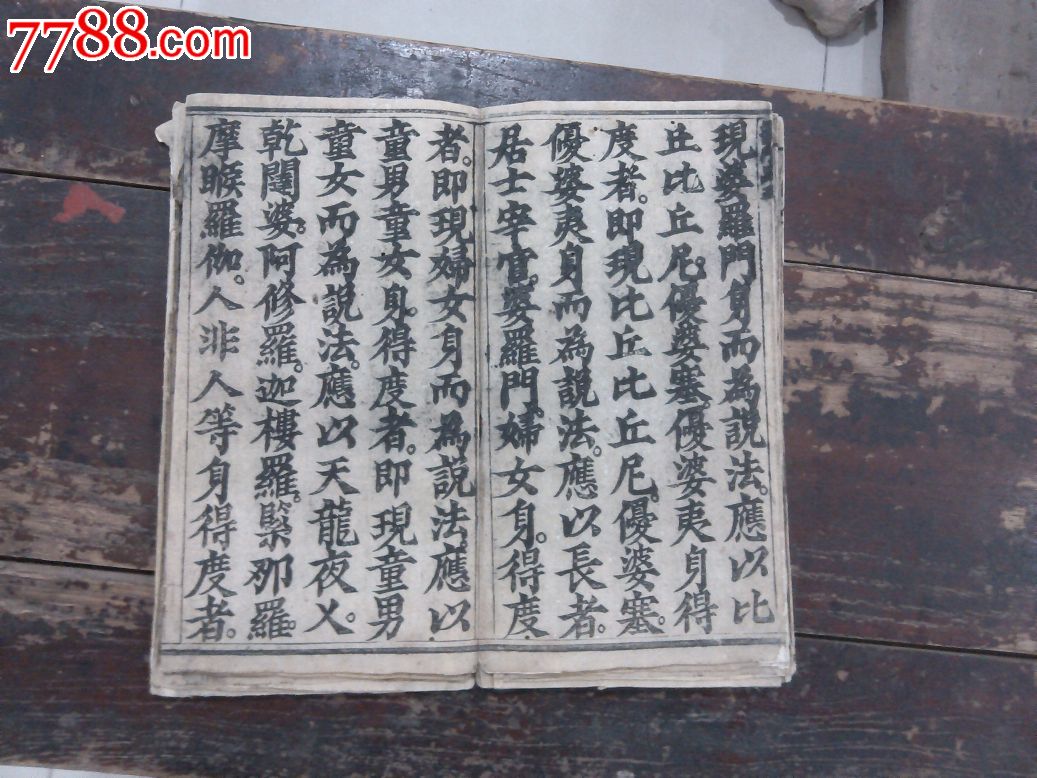 7788.com
現婆羅門身而為說法。應以比
丘比丘尼。優婆塞優婆夷身得
度者。即現比丘比丘尼。優婆塞。
優婆夷身而為說法。應以長者。
居士宰官。婆羅門婦女身。得度
者。即現婦女身而為說法。應以
童男童女身。得度者。即現童男
童女而為說法。應以天龍夜乂。
乾闥婆。阿修羅。迦樓羅。緊那羅。
摩睺羅伽。人非人等身得度者。